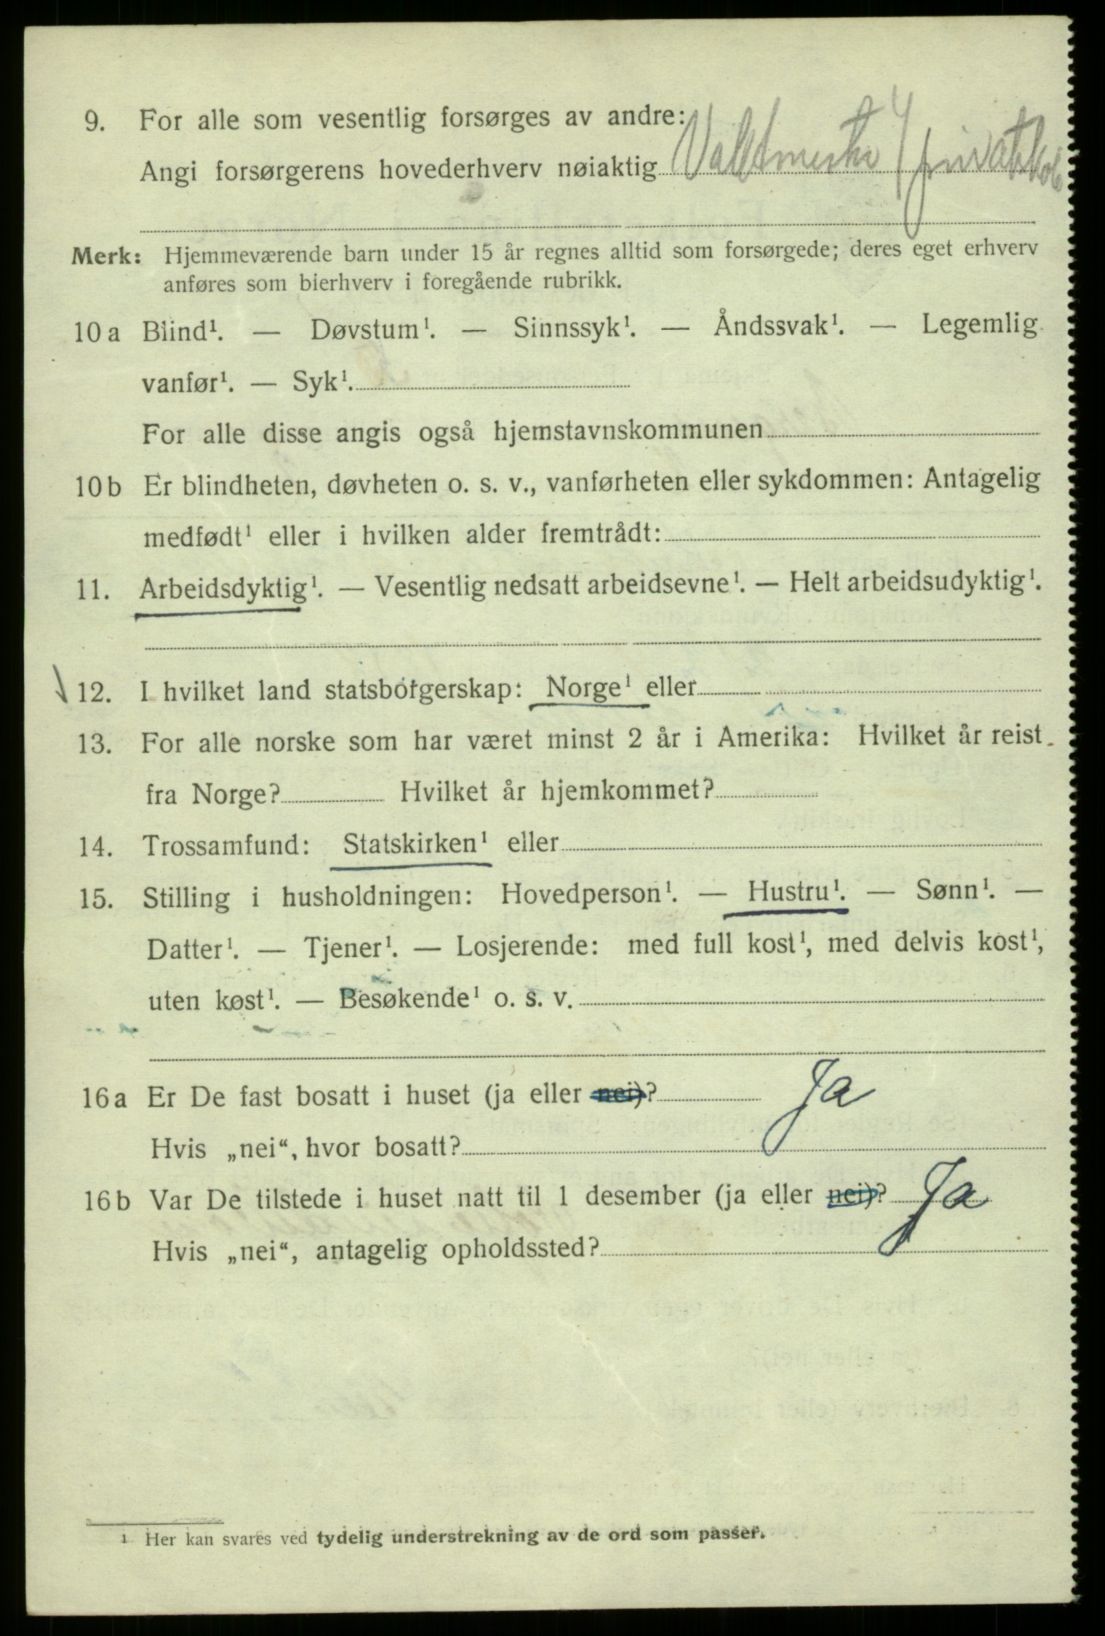 9. For alle som vesentlig forsørges av andre:
Angi forsørgerens hovederhverv nøiaktig Vaktmester / privatskole
Merk: Hjemmeværende barn under 15 år regnes alltid som forsørgede; deres eget erhverv
anføres som bierhverv i foregående rubrikk.
10 a Blind¹. — Døvstum¹. — Sinnssyk¹. — Åndssvak¹. — Legemlig
vanfør¹. — Syk¹.
For alle disse angis også hjemstavnskommunen
10 b Er blindheten, døvheten o. s. v., vanførheten eller sykdommen: Antagelig
medfødt¹ eller i hvilken alder fremtrådt:
11. Arbeidsdyktig¹. — Vesentlig nedsatt arbeidsevne¹. — Helt arbeidsudyktig¹.
12. I hvilket land statsborgerskap: Norge¹ eller
13. For alle norske som har været minst 2 år i Amerika: Hvilket år reist
fra Norge? Hvilket år hjemkommet?
14. Trossamfund: Statskirken¹ eller
15. Stilling i husholdningen: Hovedperson¹. — Hustru¹. — Sønn¹. —
Datter¹. — Tjener¹. — Losjerende: med full kost¹, med delvis kost¹,
uten kost¹. — Besøkende¹ o. s. v.
16 a Er De fast bosatt i huset (ja eller nei)? Ja
Hvis „nei“, hvor bosatt?
16 b Var De tilstede i huset natt til 1 desember (ja eller nei)? Ja
Hvis „nei“, antagelig opholdssted?
¹ Her kan svares ved tydelig understrekning av de ord som passer.